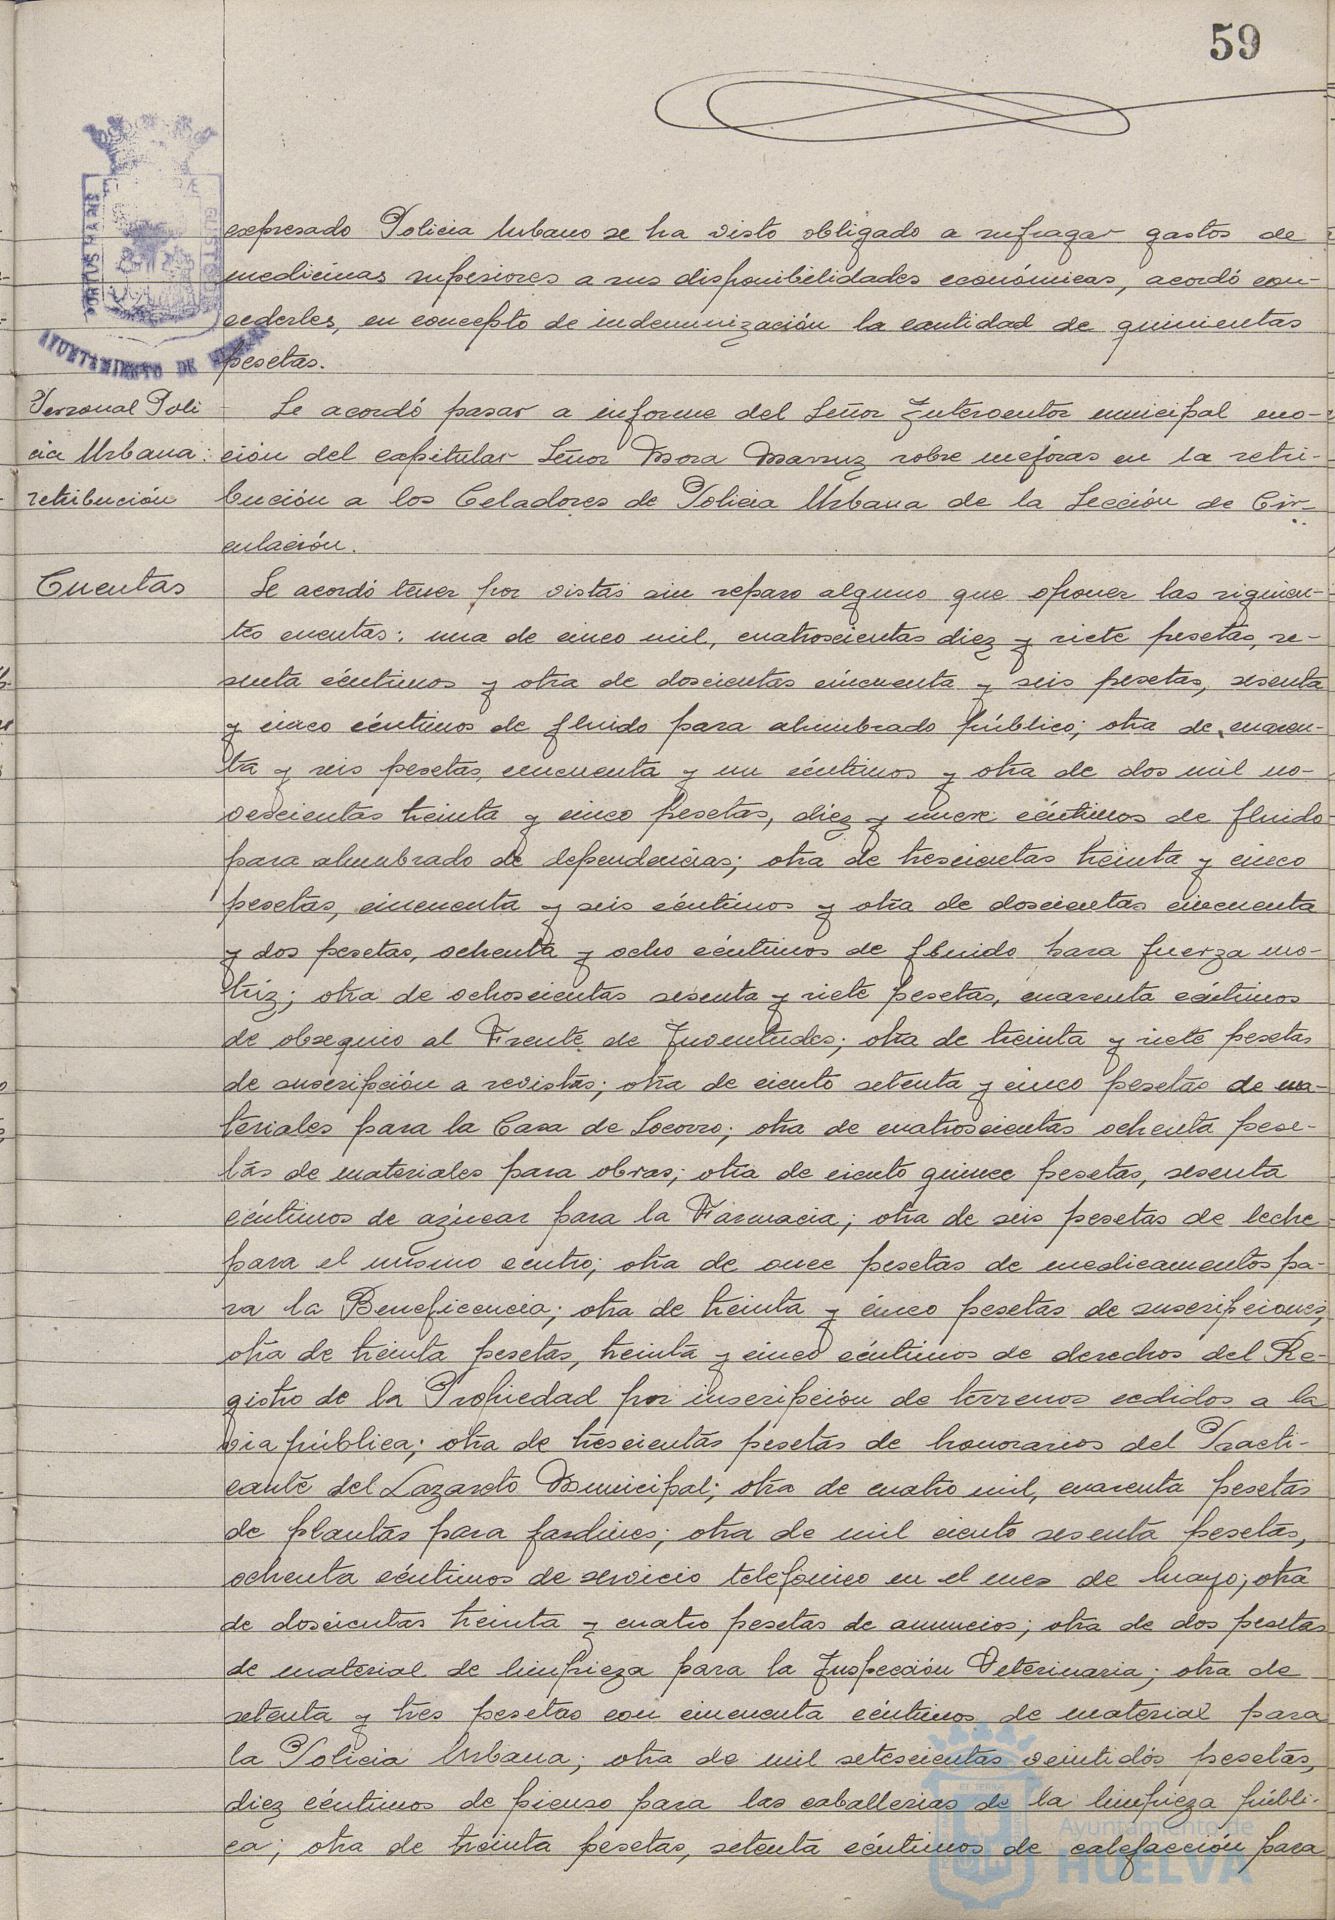 59
PORTUS MARIS
CUSTODIA
AYUNTAMIENTO DE HUELVA
expresado Policia Urbano se ha visto obligado a sufragar gastos de
medicinas superiores a sus disponibilidades económicas, acordó con-
cederles, en concepto de indemnización la cantidad de quinientas
pesetas.
Personal Poli
cia Urbana:
retribución
Se acordó pasar a informe del Señor Interventor municipal mo-
ción del capitular Señor Mora Marruz sobre mejoras en la retri-
bución a los Celadores de Policia Urbana de la Sección de Cir-
culación.
Cuentas
Se acordó tener por vistas sin reparo alguno que oponer las siguien-
tes cuentas: una de cinco mil, cuatroscientas diez y siete pesetas, se-
senta céntimos y otra de doscientas cincuenta y seis pesetas, sesenta
y cinco céntimos de fluido para alumbrado público; otra de cuaren-
ta y seis pesetas, cincuenta y un céntimos y otra de dos mil no-
vescientas treinta y cinco pesetas, diez y nueve céntimos de fluido
para alumbrado de dependencias; otra de trescientas treinta y cinco
pesetas, cincuenta y seis céntimos y otra de doscientas cincuenta
y dos pesetas, ochenta y ocho céntimos de fluido para fuerza mo-
triz; otra de ochoscientas sesenta y siete pesetas, cuarenta céntimos
de obsequio al Frente de Juventudes; otra de treinta y siete pesetas
de suscripción a revistas; otra de ciento setenta y cinco pesetas de ma-
teriales para la Casa de Socorro; otra de cuatroscientas ochenta pese-
tas de materiales para obras; otra de ciento quince pesetas, sesenta
céntimos de azúcar para la Farmacia; otra de seis pesetas de leche
para el mismo centro; otra de once pesetas de medicamentos pa-
ra la Beneficencia; otra de treinta y cinco pesetas de suscripciones;
otra de treinta pesetas, treinta y cinco céntimos de derechos del Re-
gistro de la Propiedad por inscripción de terrenos cedidos a la
via pública; otra de trescientas pesetas de honorarios del Practi-
cante del Lazareto Municipal; otra de cuatro mil, cuarenta pesetas
de plantas para jardines; otra de mil ciento sesenta pesetas,
ochenta céntimos de servicio telefónico en el mes de Mayo; otra
de doscientas treinta y cuatro pesetas de anuncios; otra de dos pesetas
de material de limpieza para la Inspección Veterinaria; otra de
setenta y tres pesetas con cincuenta céntimos de material para
la Policia Urbana; otra de mil setescientas veintidós pesetas,
diez céntimos de pienso para las caballerias de la limpieza públi-
ca; otra de treinta pesetas, setenta céntimos de calefacción para
Ayuntamiento de
HUELVA